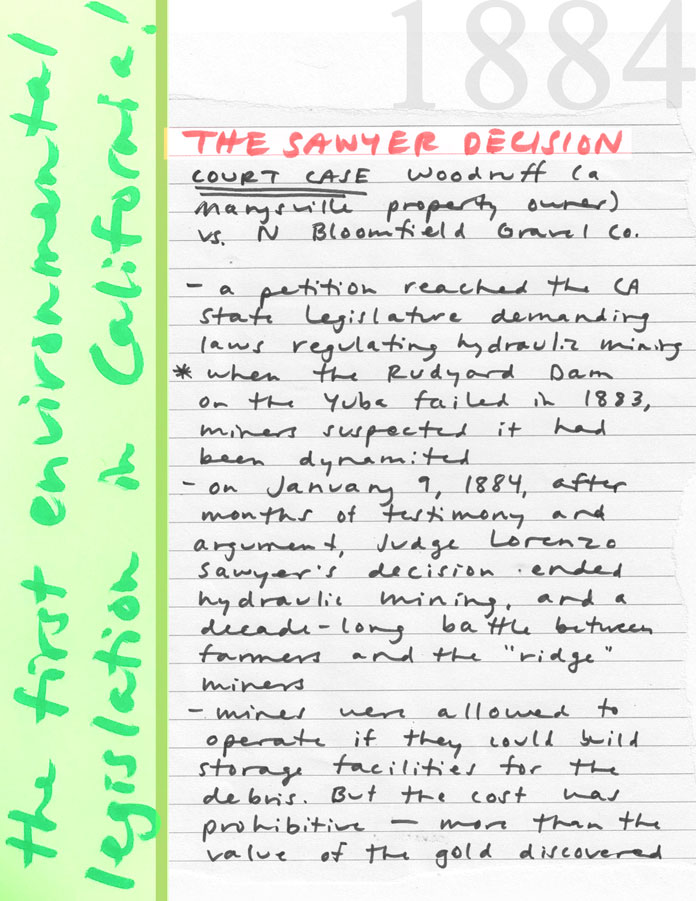 1884
the first environmental
legislation in California!
THE SAWYER DECISION
COURT CASE Woodruff (a
Marysville property owner)
vs. N Bloomfield Gravel Co.
- a petition reached the CA
State Legislature demanding
laws regulating hydraulic mining
* when the Rudyard Dam
on the Yuba failed in 1883,
miners suspected it had
been dynamited
- on January 9, 1884, after
months of testimony and
argument, Judge Lorenzo
Sawyer's decision ended
hydraulic mining, and a
decade-long battle between
farmers and the "ridge"
miners
- mines were allowed to
operate if they could build
storage facilities for the
debris. But the cost was
prohibitive — more than the
value of the gold discovered